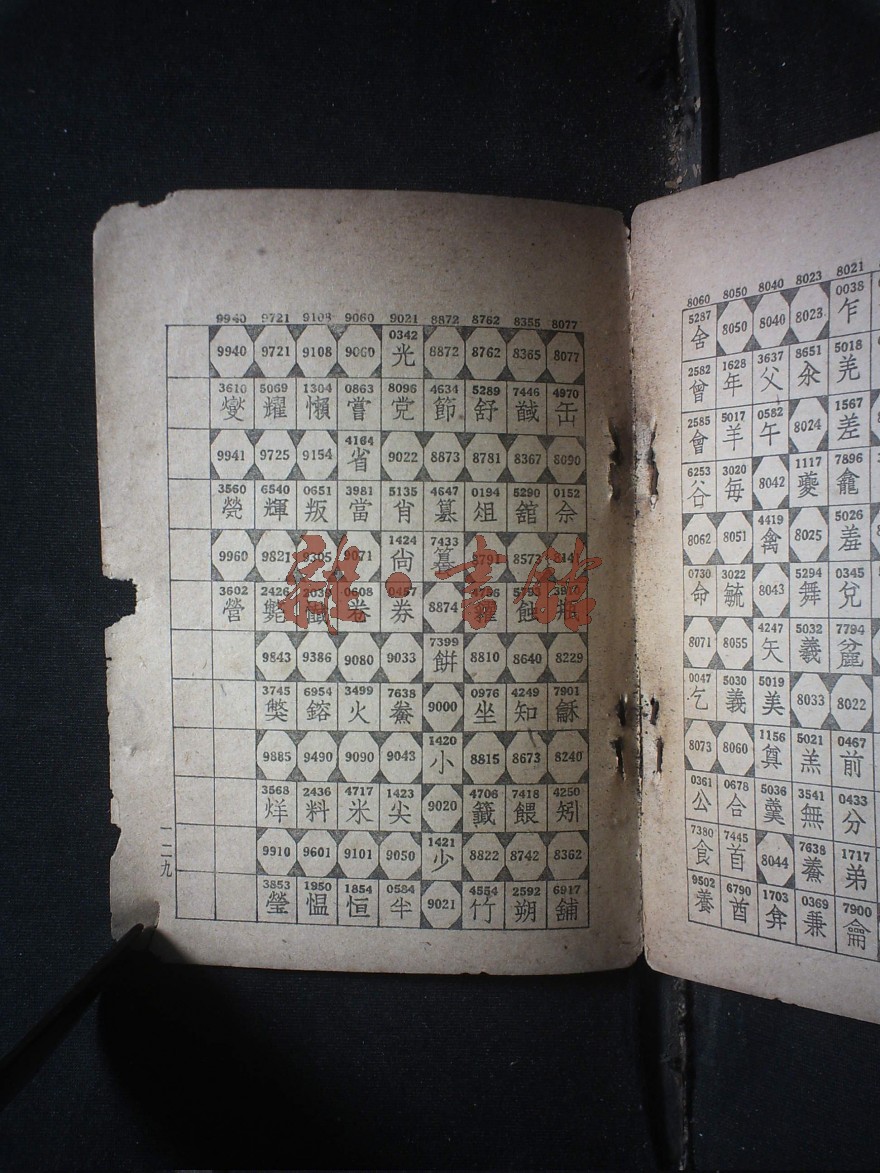 8021 0038 乍 5018 羌 1567 差 7896 龕 5026 羞 0345 兌 7794 8022 0467 前 0433 分 1717 弟 7900 龠
8023 8023 8651 汆 8024 1117 夔 8025 5294 舞 5032 羲 8033 5021 羔 3541 無 7638 鯗 0369 兼
8040 8040 3637 父 0582 午 8042 4419 禽 8043 4247 矢 5019 美 1156 奠 5036 羹 8044 1703 弇
8050 8050 1628 年 5017 羊 3020 每 8051 3022 毓 8055 5030 義 8060 0678 合 7445 首 6790 酋
8060 5287 舍 2582 曾 2585 會 6253 谷 8062 0730 命 8071 0047 乞 8073 0361 公 7380 食 9502 養
8077 8077 4970 缶 8090 0152 余 瓶 8229 7901 龢 8240 4250 矧 8362 6917 舖
8355 8365 7446 馘 8367 5290 舘 8573 蝕 8640 4249 知 8673 7418 餵 8742 2592 朔
8762 8762 5289 舒 8781 0194 俎 8791 8810 0976 坐 8815 4706 籤 8822 4554 竹
8872 8872 4634 節 8873 4647 篡 7433 8874 7399 餅 9000 1420 小 9020 1421 少 9021
9021 0342 光 8096 党 9022 5135 肖 1424 尙 0457 券 9033 7638 鯗 9043 1423 尖 9050 0584 半
9060 9060 0863 嘗 4164 省 3981 當 9071 0608 卷 9080 3499 火 9090 4717 米 9101 1854 恒
9108 9108 1304 懶 9154 0651 叛 9305 9386 6954 鎔 9490 2436 料 9601 1950 慍
9721 9721 5069 耀 9725 6540 輝 9821 2426 斃 9843 3745 獘 9885 3568 烊 9910 3853 瑩
9940 9940 3610 燮 9941 3560 煢 9960 3602 營
一二九